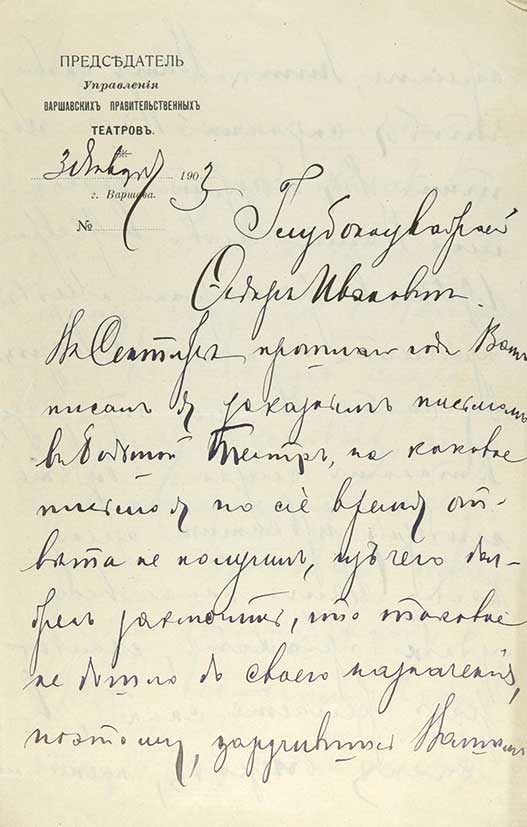 ПРЕДСѢДАТЕЛЬ
Управленія
ВАРШАВСКИХЪ ПРАВИТЕЛЬСТВЕННЫХЪ
ТЕАТРОВЪ.
3 Января 1903
г. Варшава.
№
Глубокоуважаемый
Ѳедоръ Ивановичъ.
Въ Сентябрѣ прошлаго года Вамъ
писалъ я заказнымъ письмомъ
въ Большой Театръ, на каковое
письмо я по сіе время от-
вѣта не получилъ, изъ чего
заключить, что таковое
не дошло до своего назначенія,
поэтому, заручившись Вашимъ